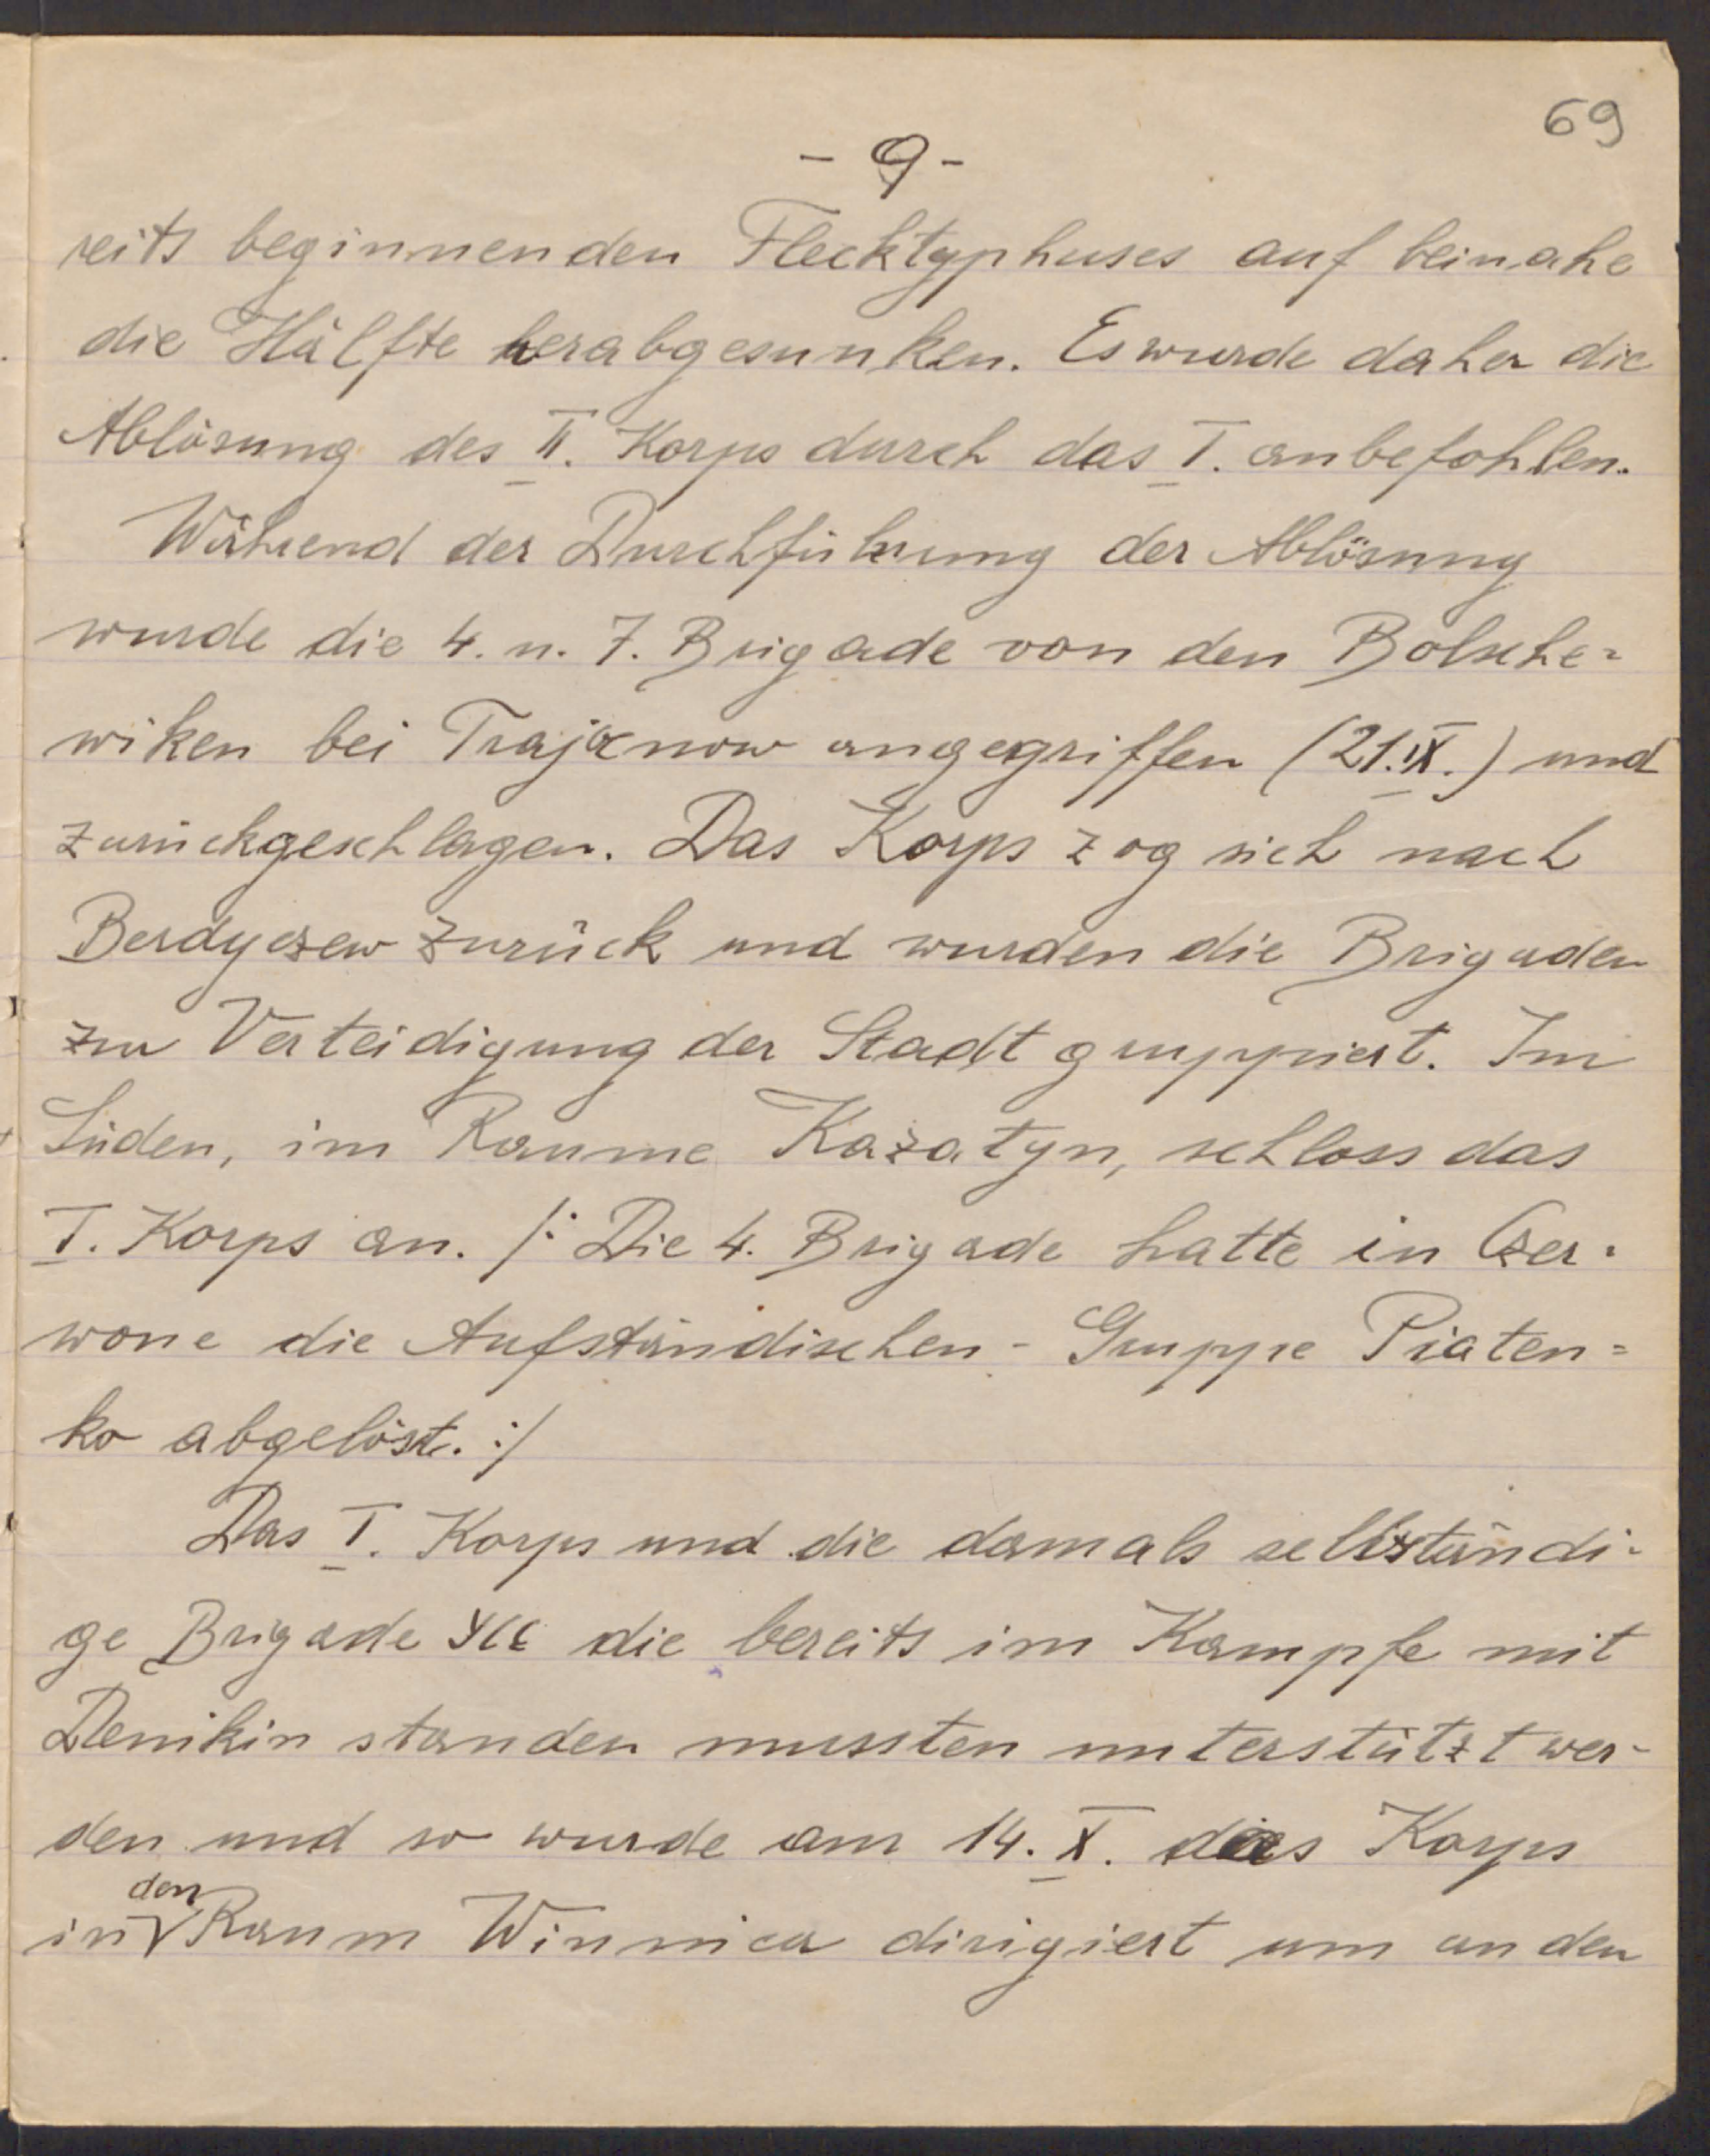 69
- 9 -
reits beginnenden Flecktyphuses auf beinahe
die Hälfte herabgesunken. Es wurde daher die
Ablösung des II. Korps durch das I. anbefohlen.
Während der Durchführung der Ablösung
wurde die 4. u. 7. Brigade von den Bolsche=
wiken bei Trajanow angegriffen (21.IX.) und
zurückgeschlagen. Das Korps zog sich nach
Berdyczew zurück und wurden die Brigaden
zur Verteidigung der Stadt gruppiert. Im
Süden, im Raume Kazatyn, schloss das
I. Korps an. /: Die 4. Brigade hatte in Czer=
wone die Aufständischen - Gruppe Piaten=
ko abgelöst. :/
Das I. Korps und die damals selbständi-
ge Brigade die bereits im Kampfe mit
Denikin standen mussten unterstützt wer-
den und so wurde am 14. X. das Korps
in den Raum Winnica dirigiert um an den